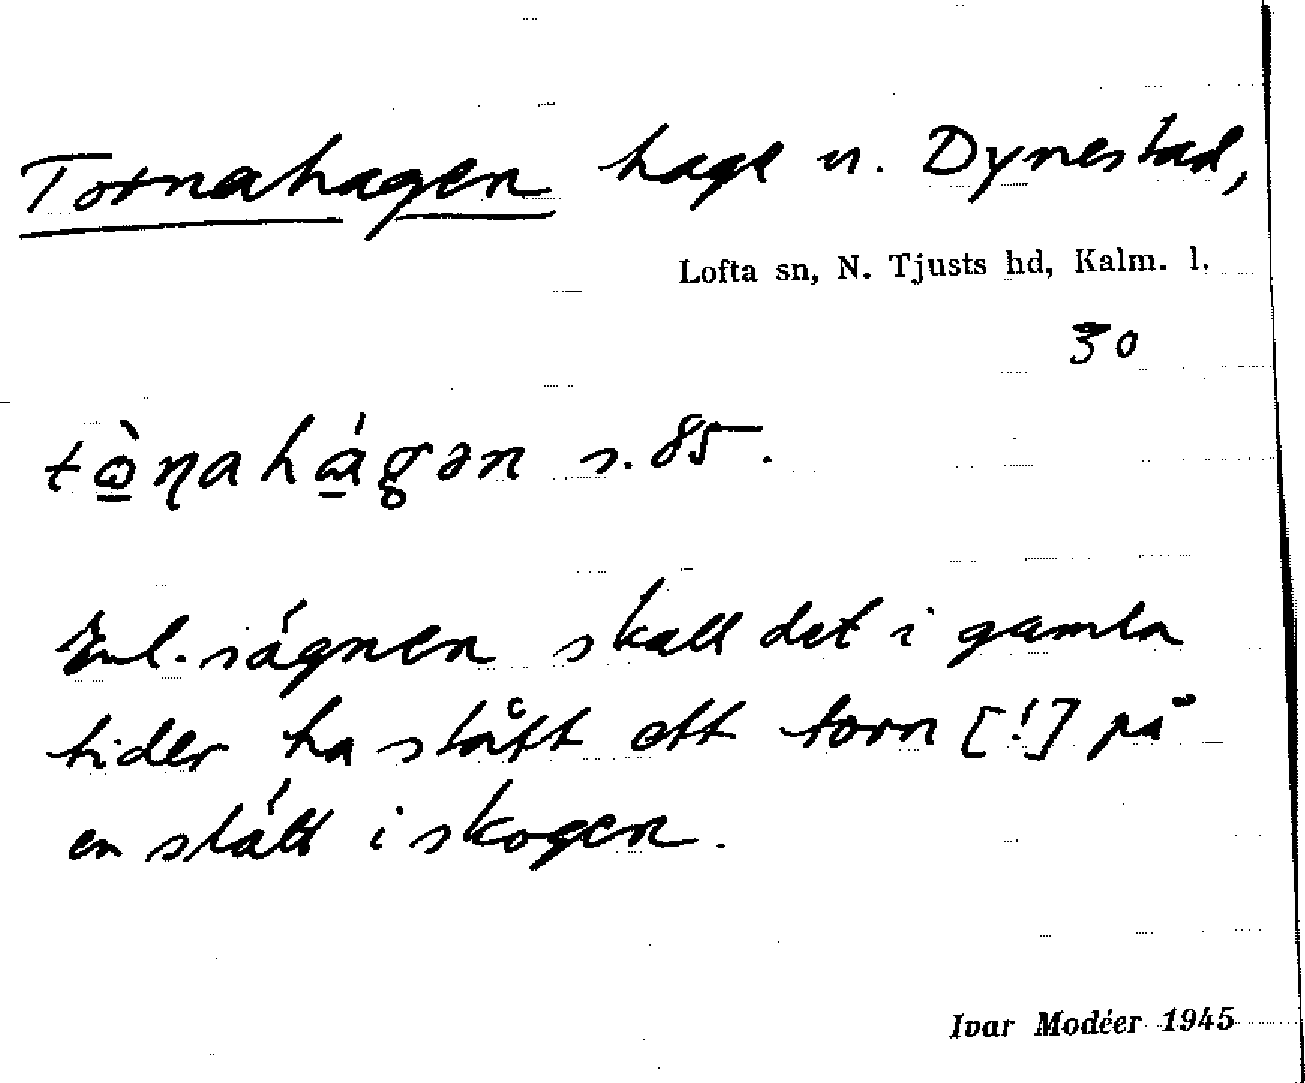 Tornahagen hage u. Dynestad,
Lofta sn, N. Tjusts hd, Kalm. l.
30
tò̱ŋahá̱gən s. 85.
Enl. sägnen skall det i gamla
tider ha stått ett torn [!] på
en slätt i skogen.
Ivar Modéer 1945